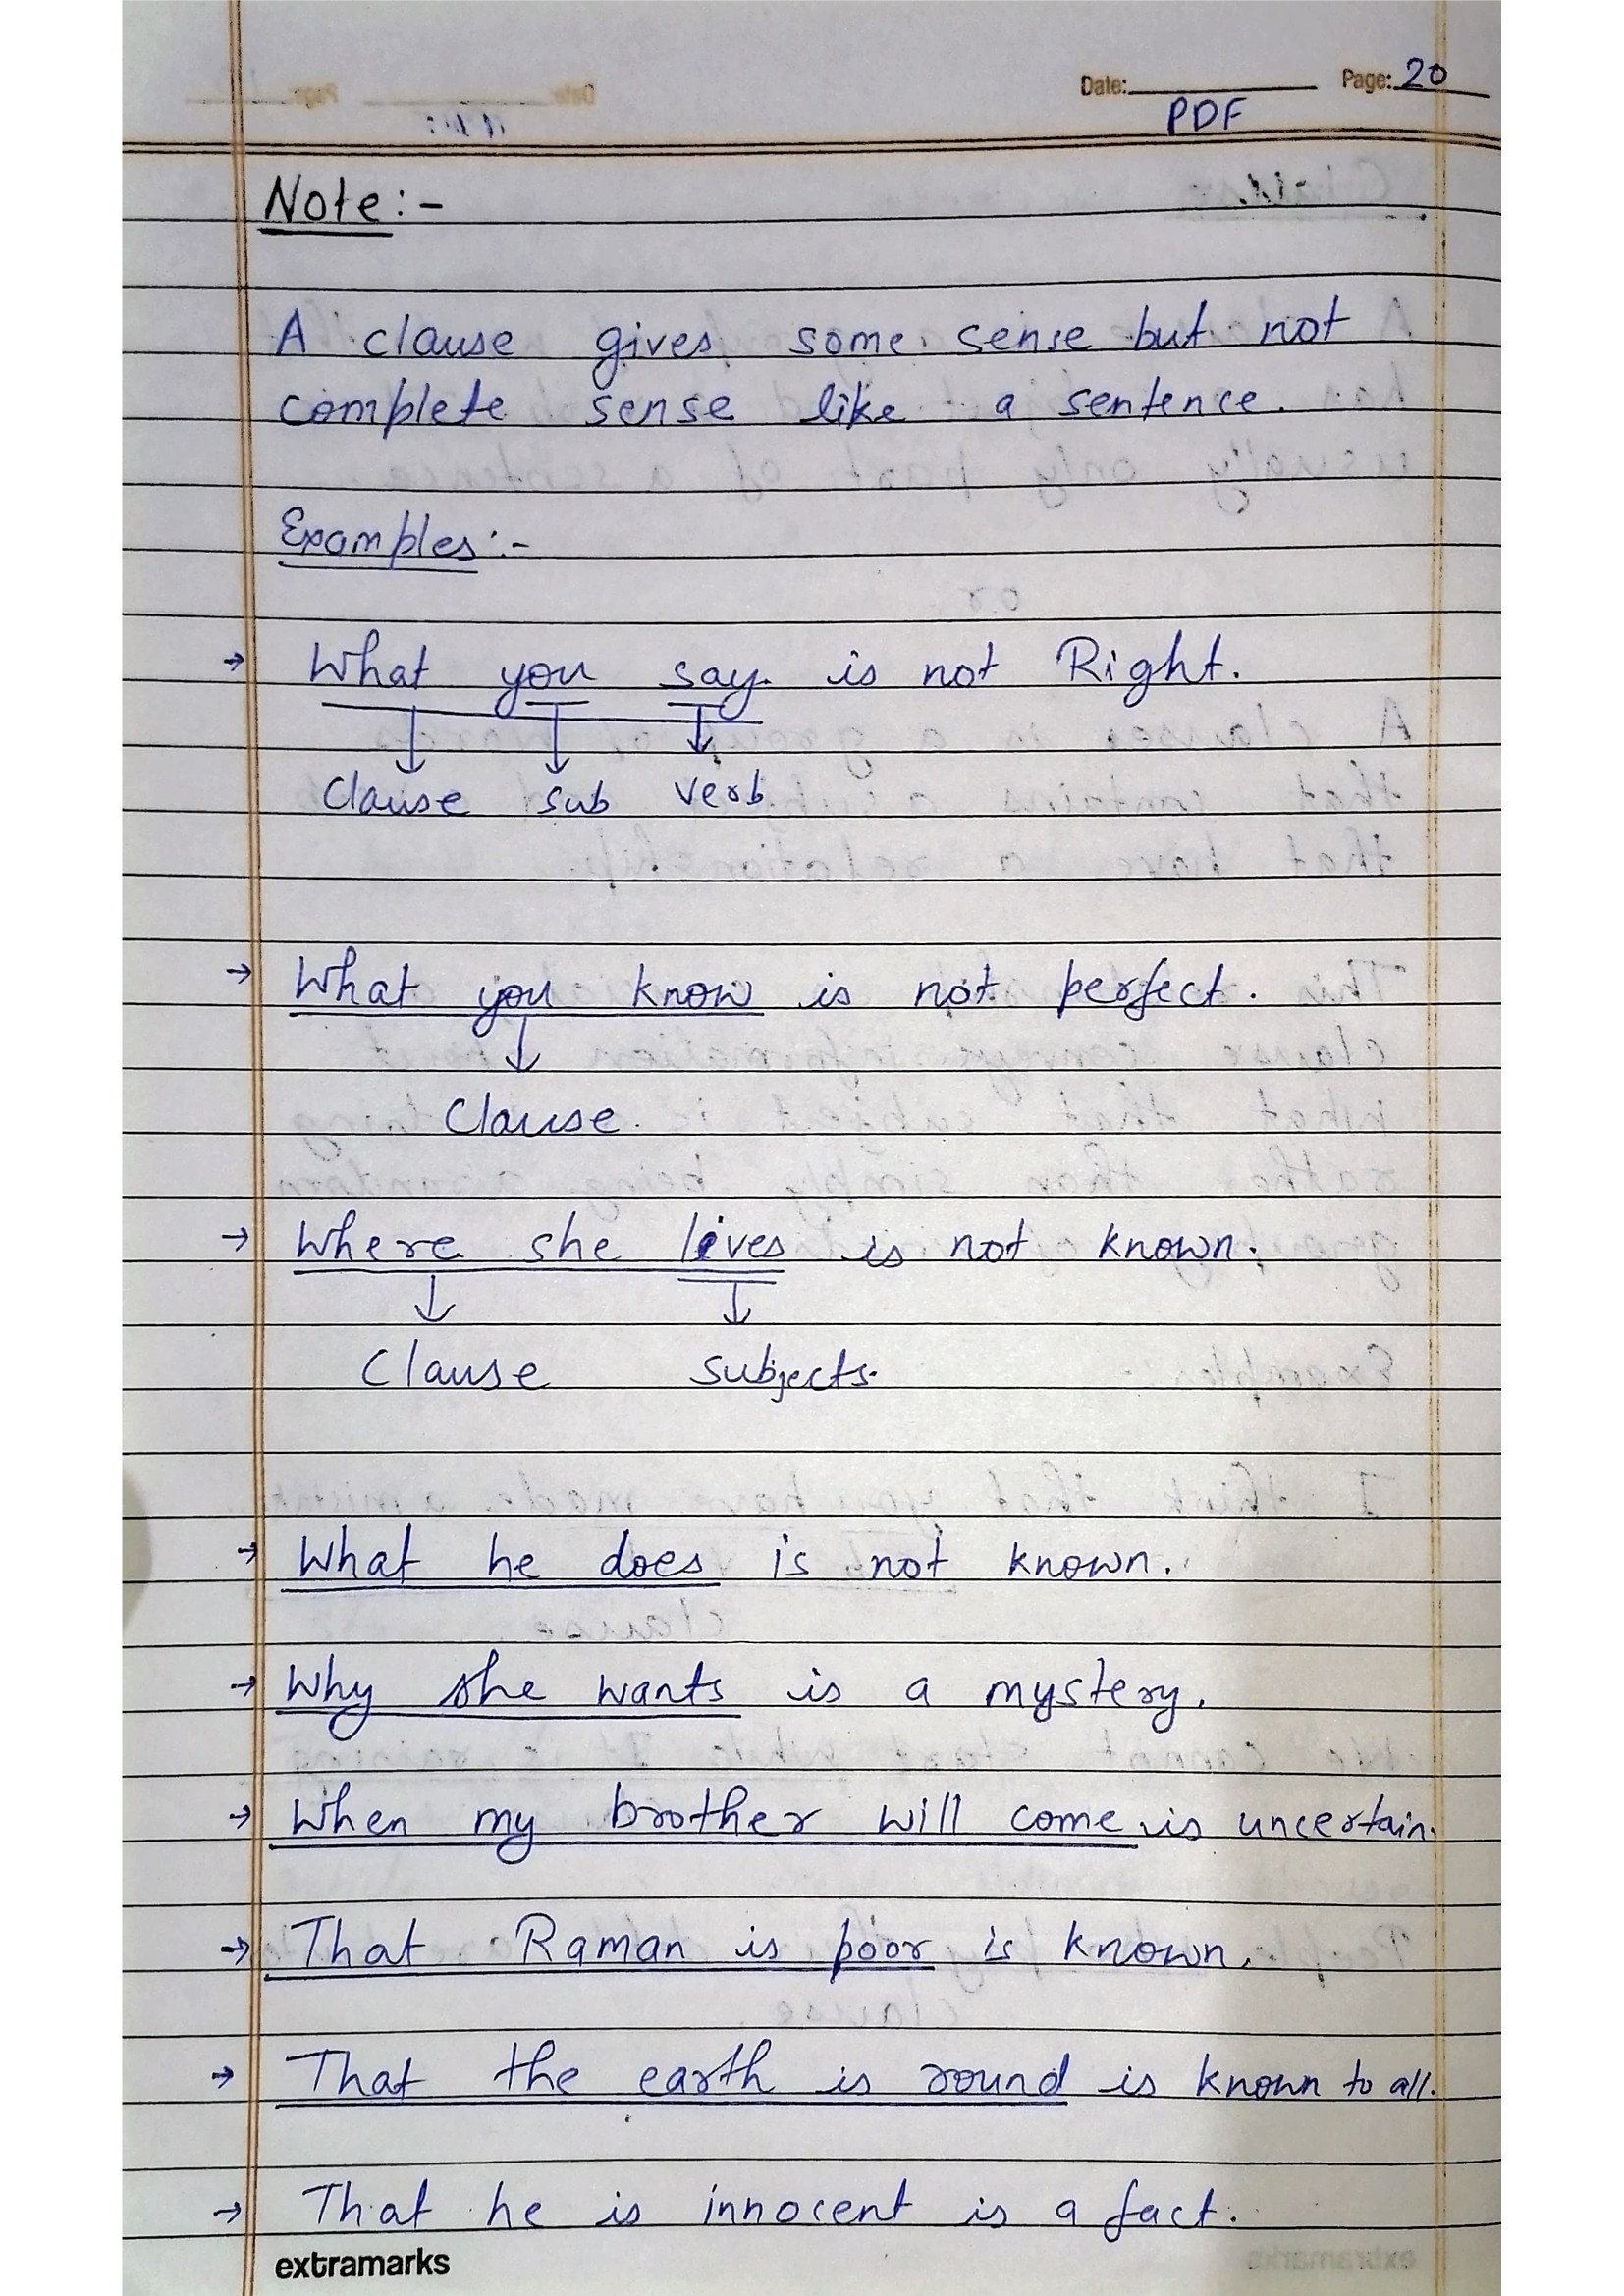 Date: Page: 20
PDF
Note:-
A clause gives some sense but not
complete sense like a sentence.
Examples:-
→ What you say is not Right.
Clause sub verb
→ What you know is not perfect.
Clause.
→ Where she lives is not known.
Clause subjects.
→ What he does is not known.
→ Why she wants is a mystery.
→ When my brother will come is uncertain.
→ That Raman is poor is known.
→ That the earth is round is known to all.
→ That he is innocent is a fact.
extramarks